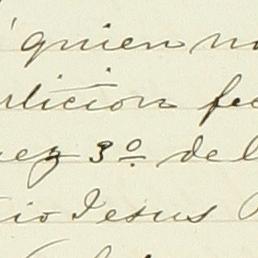 quien
ición fe
ez 3º del
io Jesus